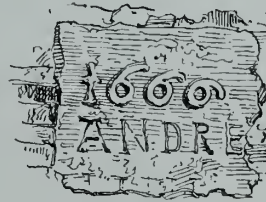 1669
ANDRE